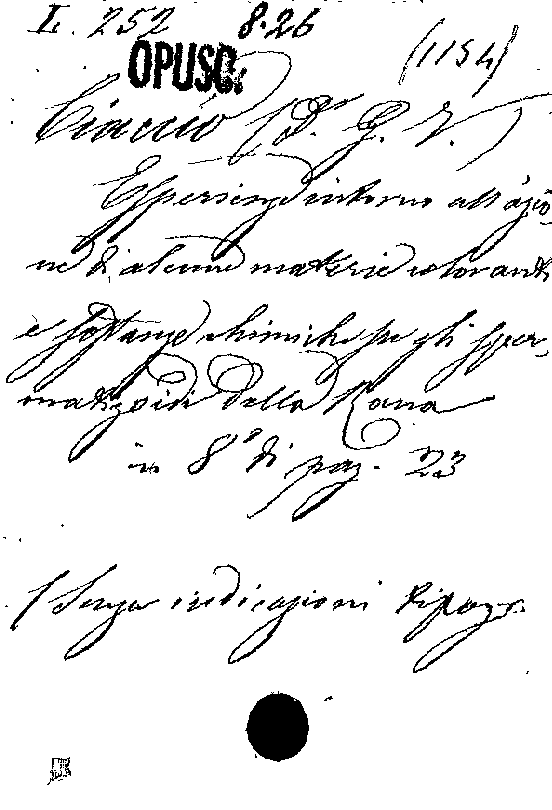 L. 252 8.26
OPUSC.
(1154)
Ciaccio (D. G. V.)
Esperienze intorno all'azio-
ne di alcune materie coloranti
e sostanze chimiche su gli sper-
matozoidi della Rana
in 8° di pag. 23
(Senza indicazioni